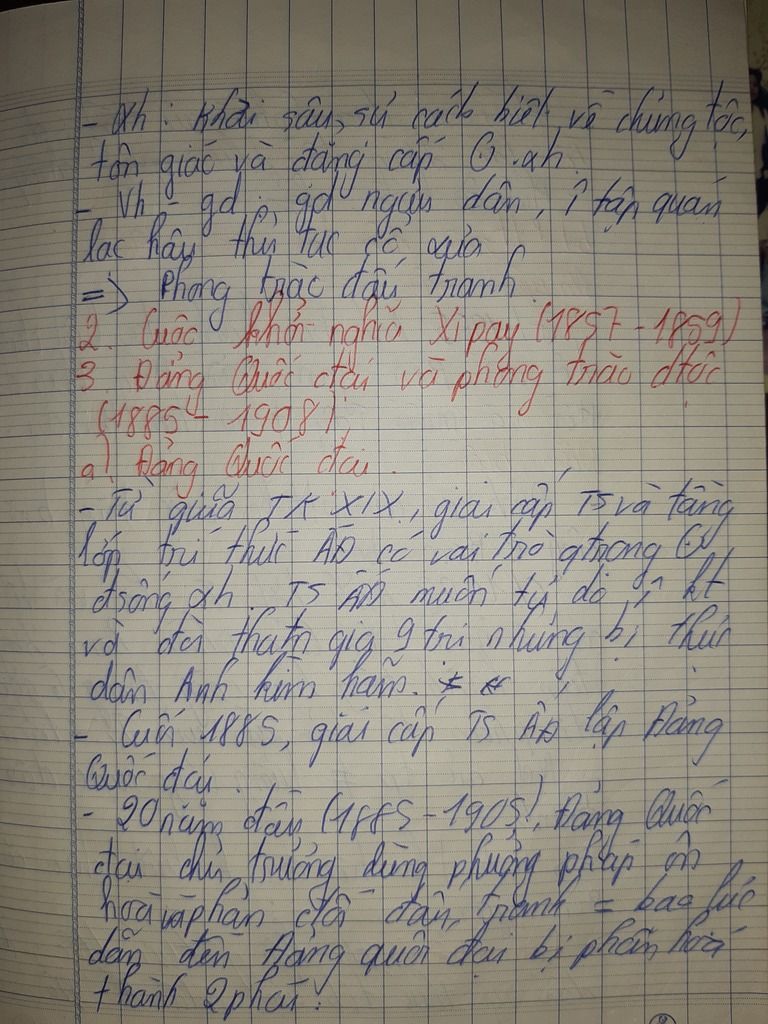 - Xh: Khơi sâu sự cách biệt về chủng tộc,
tôn giáo và đẳng cấp ⊙ xh.
- Vh - gd: gd ngu dân, ↑ tập quán
lạc hậu, thủ tục cổ xưa
=> Phong trào đấu tranh
2. Cuộc khởi nghĩa Xipay (1857 - 1859)
3. Đảng Quốc đại và phong trào dtộc
(1885 - 1908)
a) Đảng Quốc đại.
- Từ giữa TK XIX, giai cấp TS và tầng
lớp trí thức ÂĐ có vai trò qtrọng ⊙
đsống xh. TS ÂĐ muốn tự do ↑ kt
và đòi tham gia 9 trị nhưng bị thực
dân Anh kìm hãm.
- Cuối 1885, giai cấp TS ÂĐ lập Đảng
Quốc đại.
- 20 năm đầu (1885 - 1905), Đảng Quốc
đại chủ trương dùng phương pháp ôn
hoà và phản đối đấu tranh = bạo lực
dẫn đến Đảng quốc đại bị phân hoá
thành 2 phái: